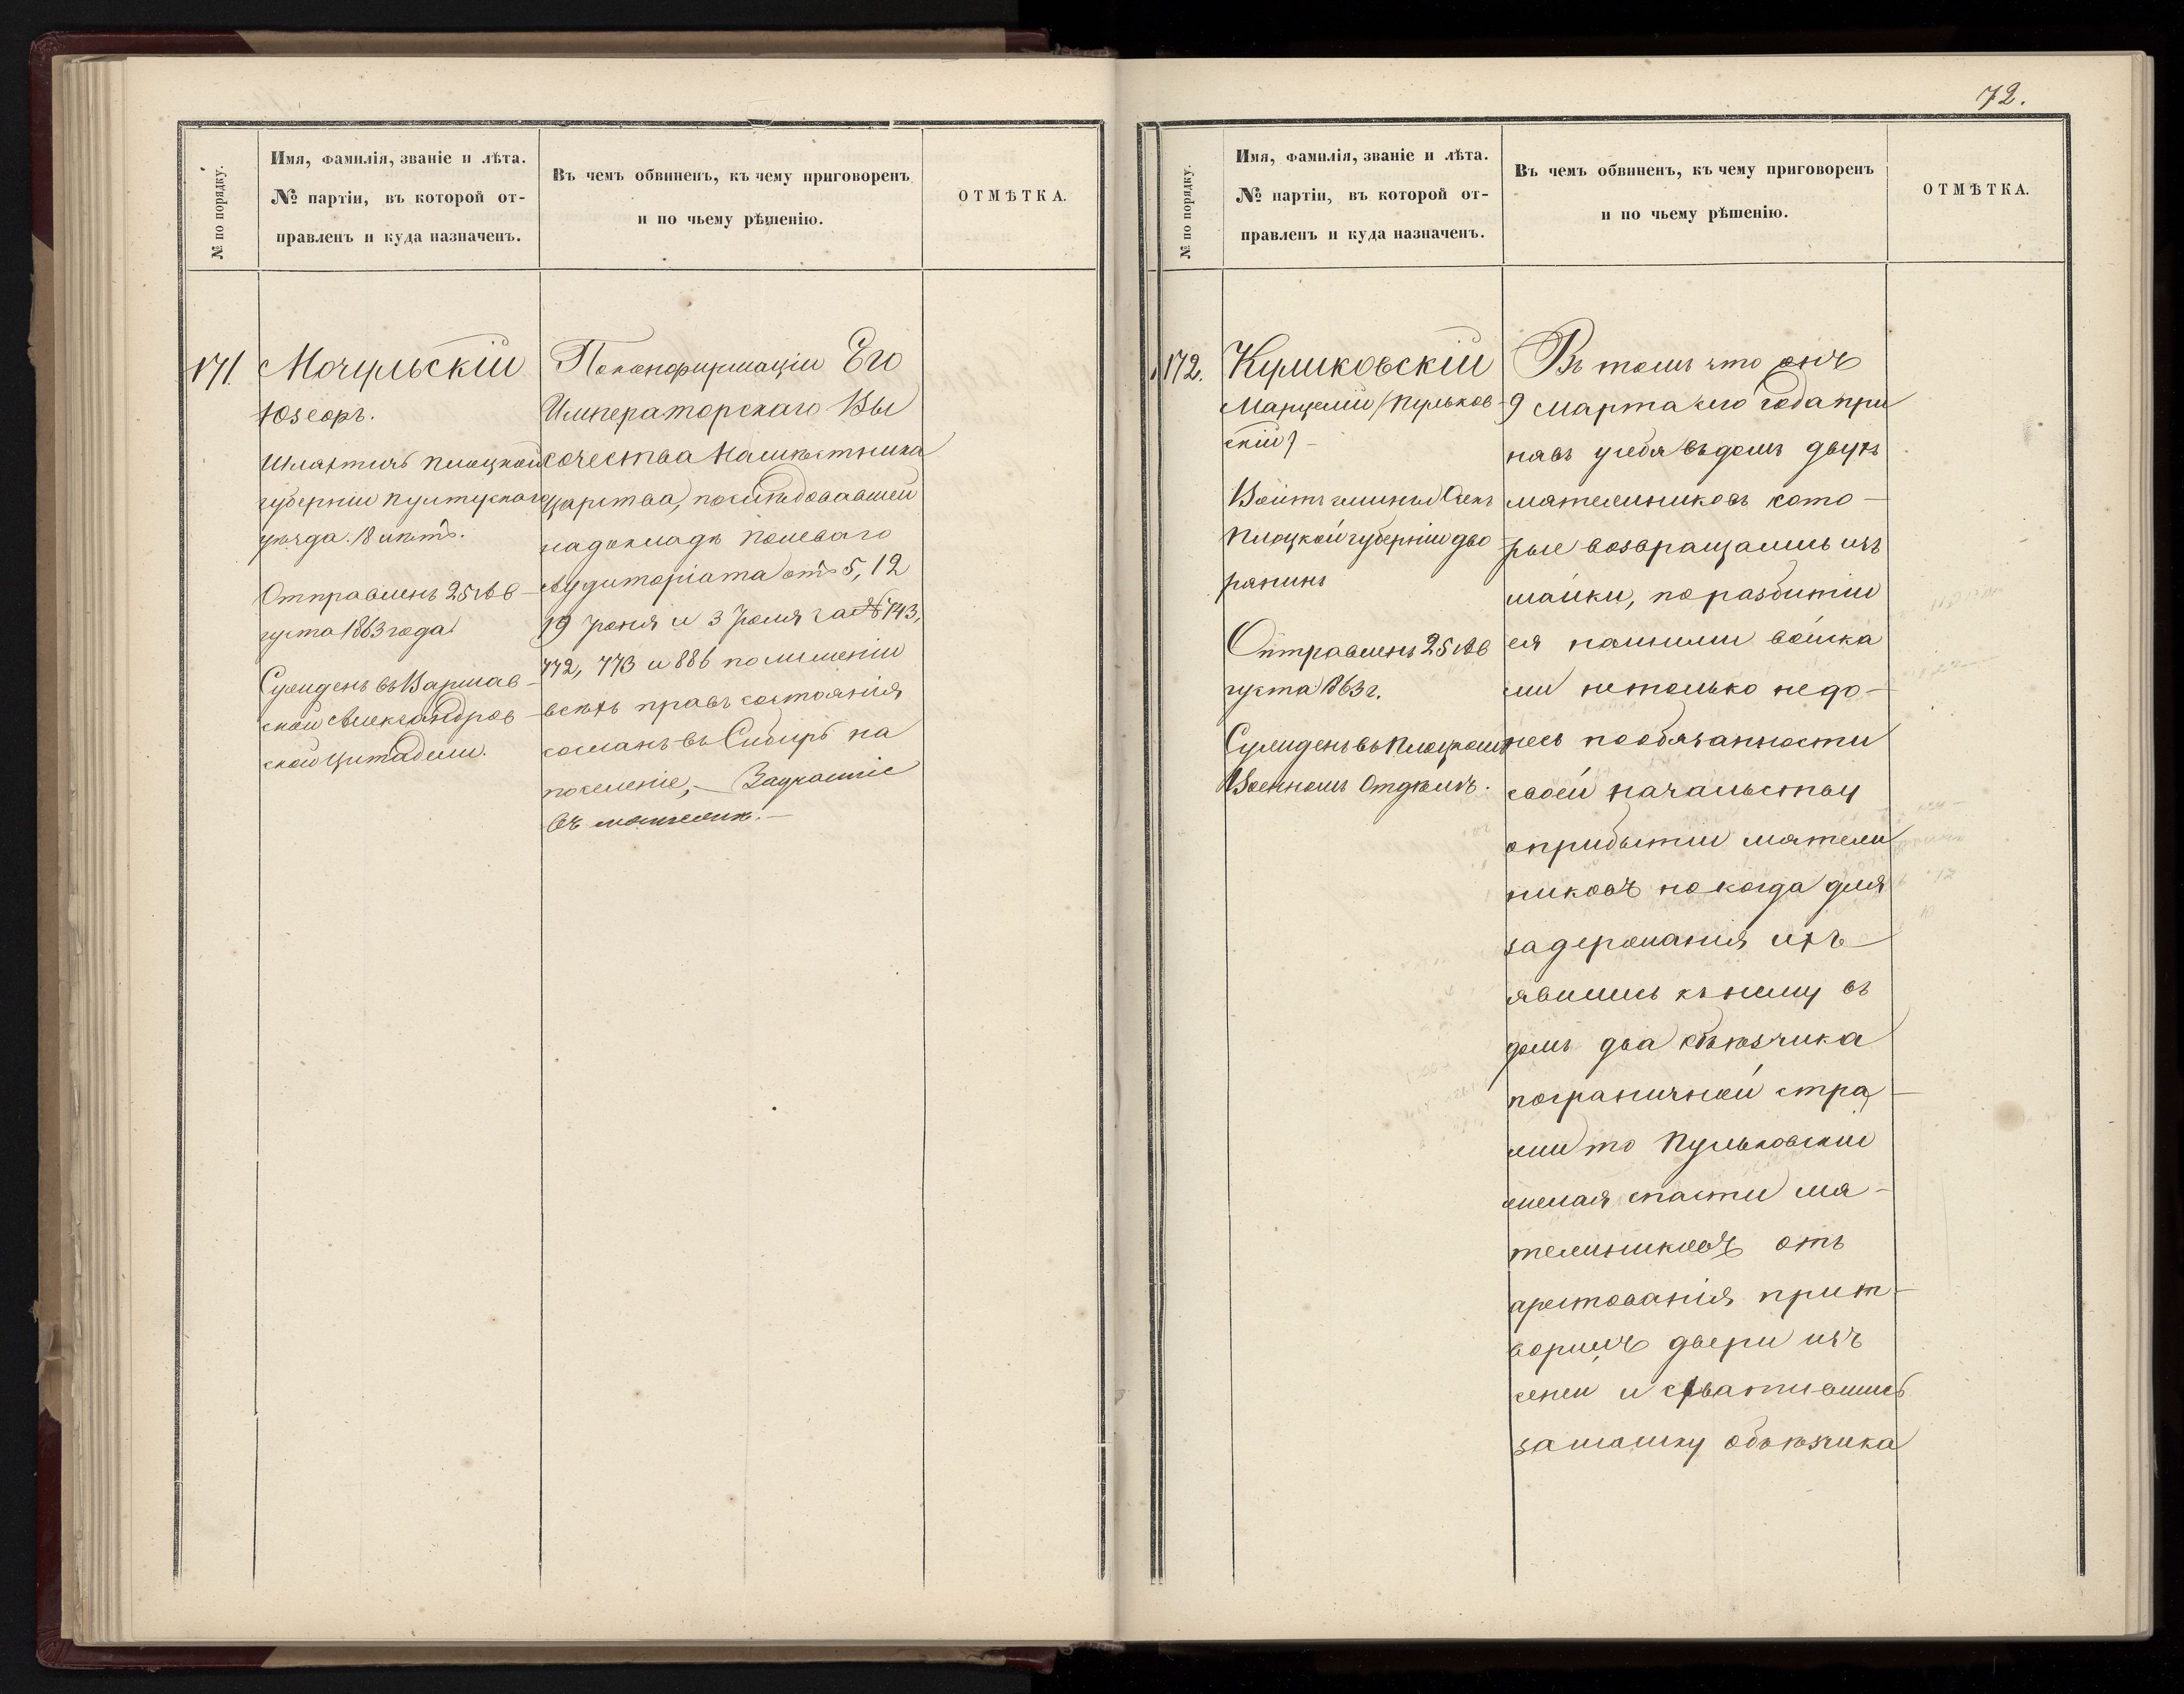 № по порядку.
Имя, фамилія, званіе и лѣта.
№ партіи, въ которой от-
правленъ и куда назначенъ.
Въ чемъ обвиненъ, къ чему приговоренъ
и по чьему рѣшенію.
ОТМѢТКА.
171.
Мочульскій
Юзефъ.
Шляхтичъ Плоцкой
губерніи Пултускаго
уѣзда. 18 лѣтъ.
Отправленъ 25 Ав-
густа 1863 года.
Сужденъ въ Варшав-
ской Александров-
ской Цитадели.
По конфирмаціи Его
Императорскаго Вы
сочества Намѣстника
Царства, послѣдовавшей
на докладѣ Полеваго
Аудиторіата отъ 5, 12
19 Іюня и 3 Іюля за № 743,
772, 773 и 886 по лишеніи
всѣхъ правъ состоянія
сосланъ въ Сибирь на
поселеніе, – За участіе
въ мятежѣ. –
72.
№ по порядку.
Имя, фамилія, званіе и лѣта.
№ партіи, въ которой от-
правленъ и куда назначенъ.
Въ чемъ обвиненъ, къ чему приговоренъ
и по чьему рѣшенію.
ОТМѢТКА.
172.
Куликовскій
Марцелій (Пульков-
скій) –
Войтъ гмины
Плоцкой губерніи дво-
рянинъ
Отправленъ 25 Ав
густа 1863 г.
Сужденъ въ Плоцкомъ
Военномъ Отдѣлѣ.
Въ томъ что онъ
9 Марта сего года при
нявъ у себя въ домъ двухъ
мятежниковъ кото-
рые возвращались изъ
шайки, по разбитіи
ея нашими войска
ми не только не до-
несъ по обязанности
своей начальству
о прибытіи мятеж
никовъ но когда для
задержанія ихъ
явились къ нему въ
домъ два объѣзчика
пограничной стра-
жи то Пульковскій
желая спасти мя-
тежниковъ отъ
арестованія прит-
ворилъ двери изъ
сеней и схватившись
за шашку объѣзчика